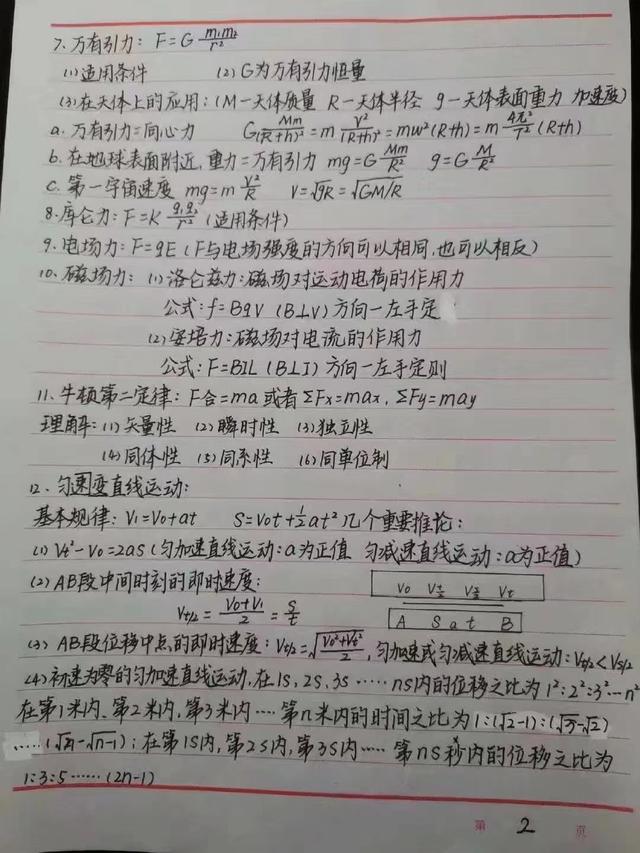 7. 万有引力: F=G m₁m₂/r²
(1)适用条件 (2)G为万有引力恒量
(3)在天体上的应用:(M一天体质量 R一天体半径 g一天体表面重力 加速度)
a. 万有引力=向心力 G Mm/(R+h)² = m V²/(R+h)² = mw²(R+h) = m 4π²/T² (R+h)
b. 在地球表面附近,重力=万有引力 mg=G Mm/R² g=G M/R²
C. 第一宇宙速度 mg=m V²/R V=√gR=√GM/R
8. 库仑力: F=K q₁q₂/r² (适用条件)
9. 电场力: F=qE (F与电场强度的方向可以相同,也可以相反)
10. 磁场力: (1)洛仑兹力:磁场对运动电荷的作用力
公式:f=BqV (B⊥V) 方向一左手定
(2)安培力:磁场对电流的作用力
公式:F=BIL (B⊥I) 方向一左手定则
11. 牛顿第二定律: F合=ma 或者ΣFx=max, ΣFy=may
理解: (1)矢量性 (2)瞬时性 (3)独立性
(4)同体性 (5)同系性 (6)同单位制
12. 匀速变直线运动:
基本规律: V₁=V₀+at S=V₀t+½at² 几个重要推论:
(1) Vt²-V₀=2as (匀加速直线运动:a为正值 匀减速直线运动:a为正值)
(2) AB段中间时刻的即时速度:
V₀ Vt/2 Vs/2 Vt
Vt/2 = (V₀+V₁)/2 = S/t
A S a t B
(3) AB段位移中点的即时速度: Vs/2=√(V₀²+Vt²)/2, 匀加速或匀减速直线运动: Vt/2<Vs/2
(4)初速为零的匀加速直线运动,在1S,2S,3S······nS内的位移之比为1²:2²:3²···n²
在第1米内、第2米内,第3米内····第n米内的时间之比为1:(√2-1):(√3-√2)
······(√n-√n-1); 在第1S内,第2S内,第3S内····· 第nS秒内的位移之比为
1:3:5······(2n-1)
第 2 页